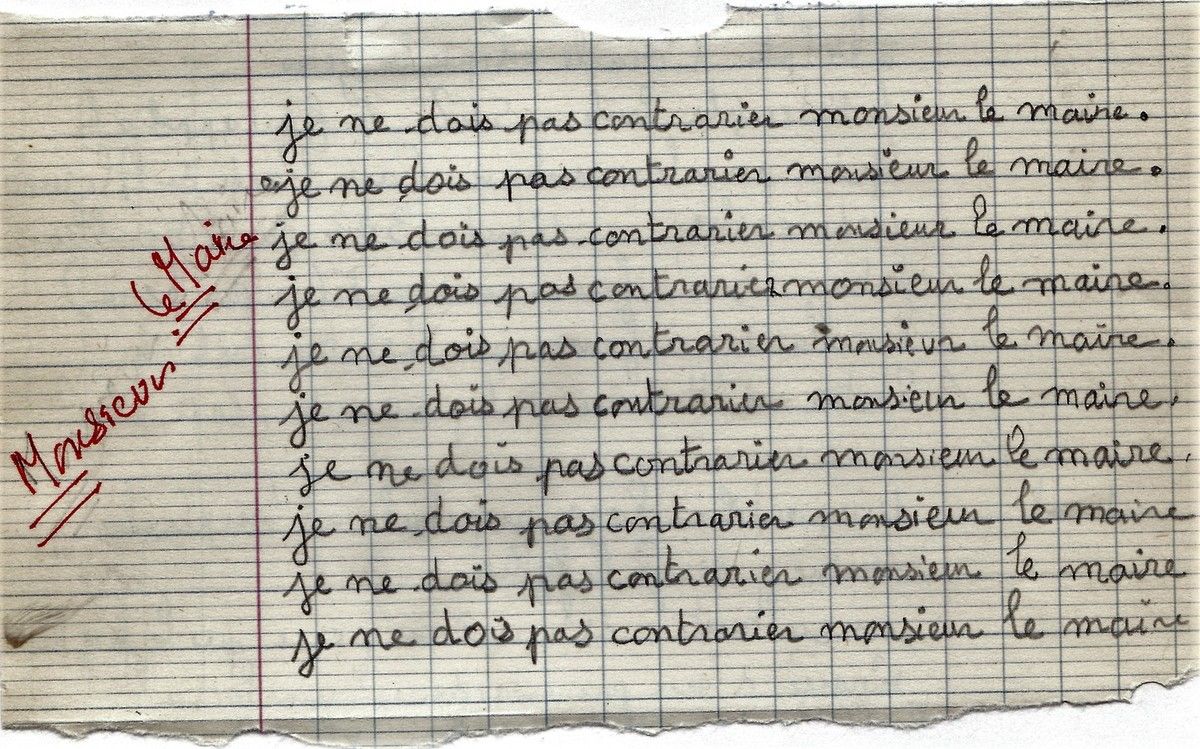 je ne dois pas contrarier monsieur le maire.
je ne dois pas contrarier monsieur le maire.
je ne dois pas contrarier monsieur le maire.
je ne dois pas contrarier monsieur le maire.
je ne dois pas contrarier monsieur le maire.
je ne dois pas contrarier monsieur le maire.
je ne dois pas contrarier monsieur le maire.
je ne dois pas contrarier monsieur le maire
je ne dois pas contrarier monsieur le maire
je ne dois pas contrarier monsieur le maire
Monsieur le Maire